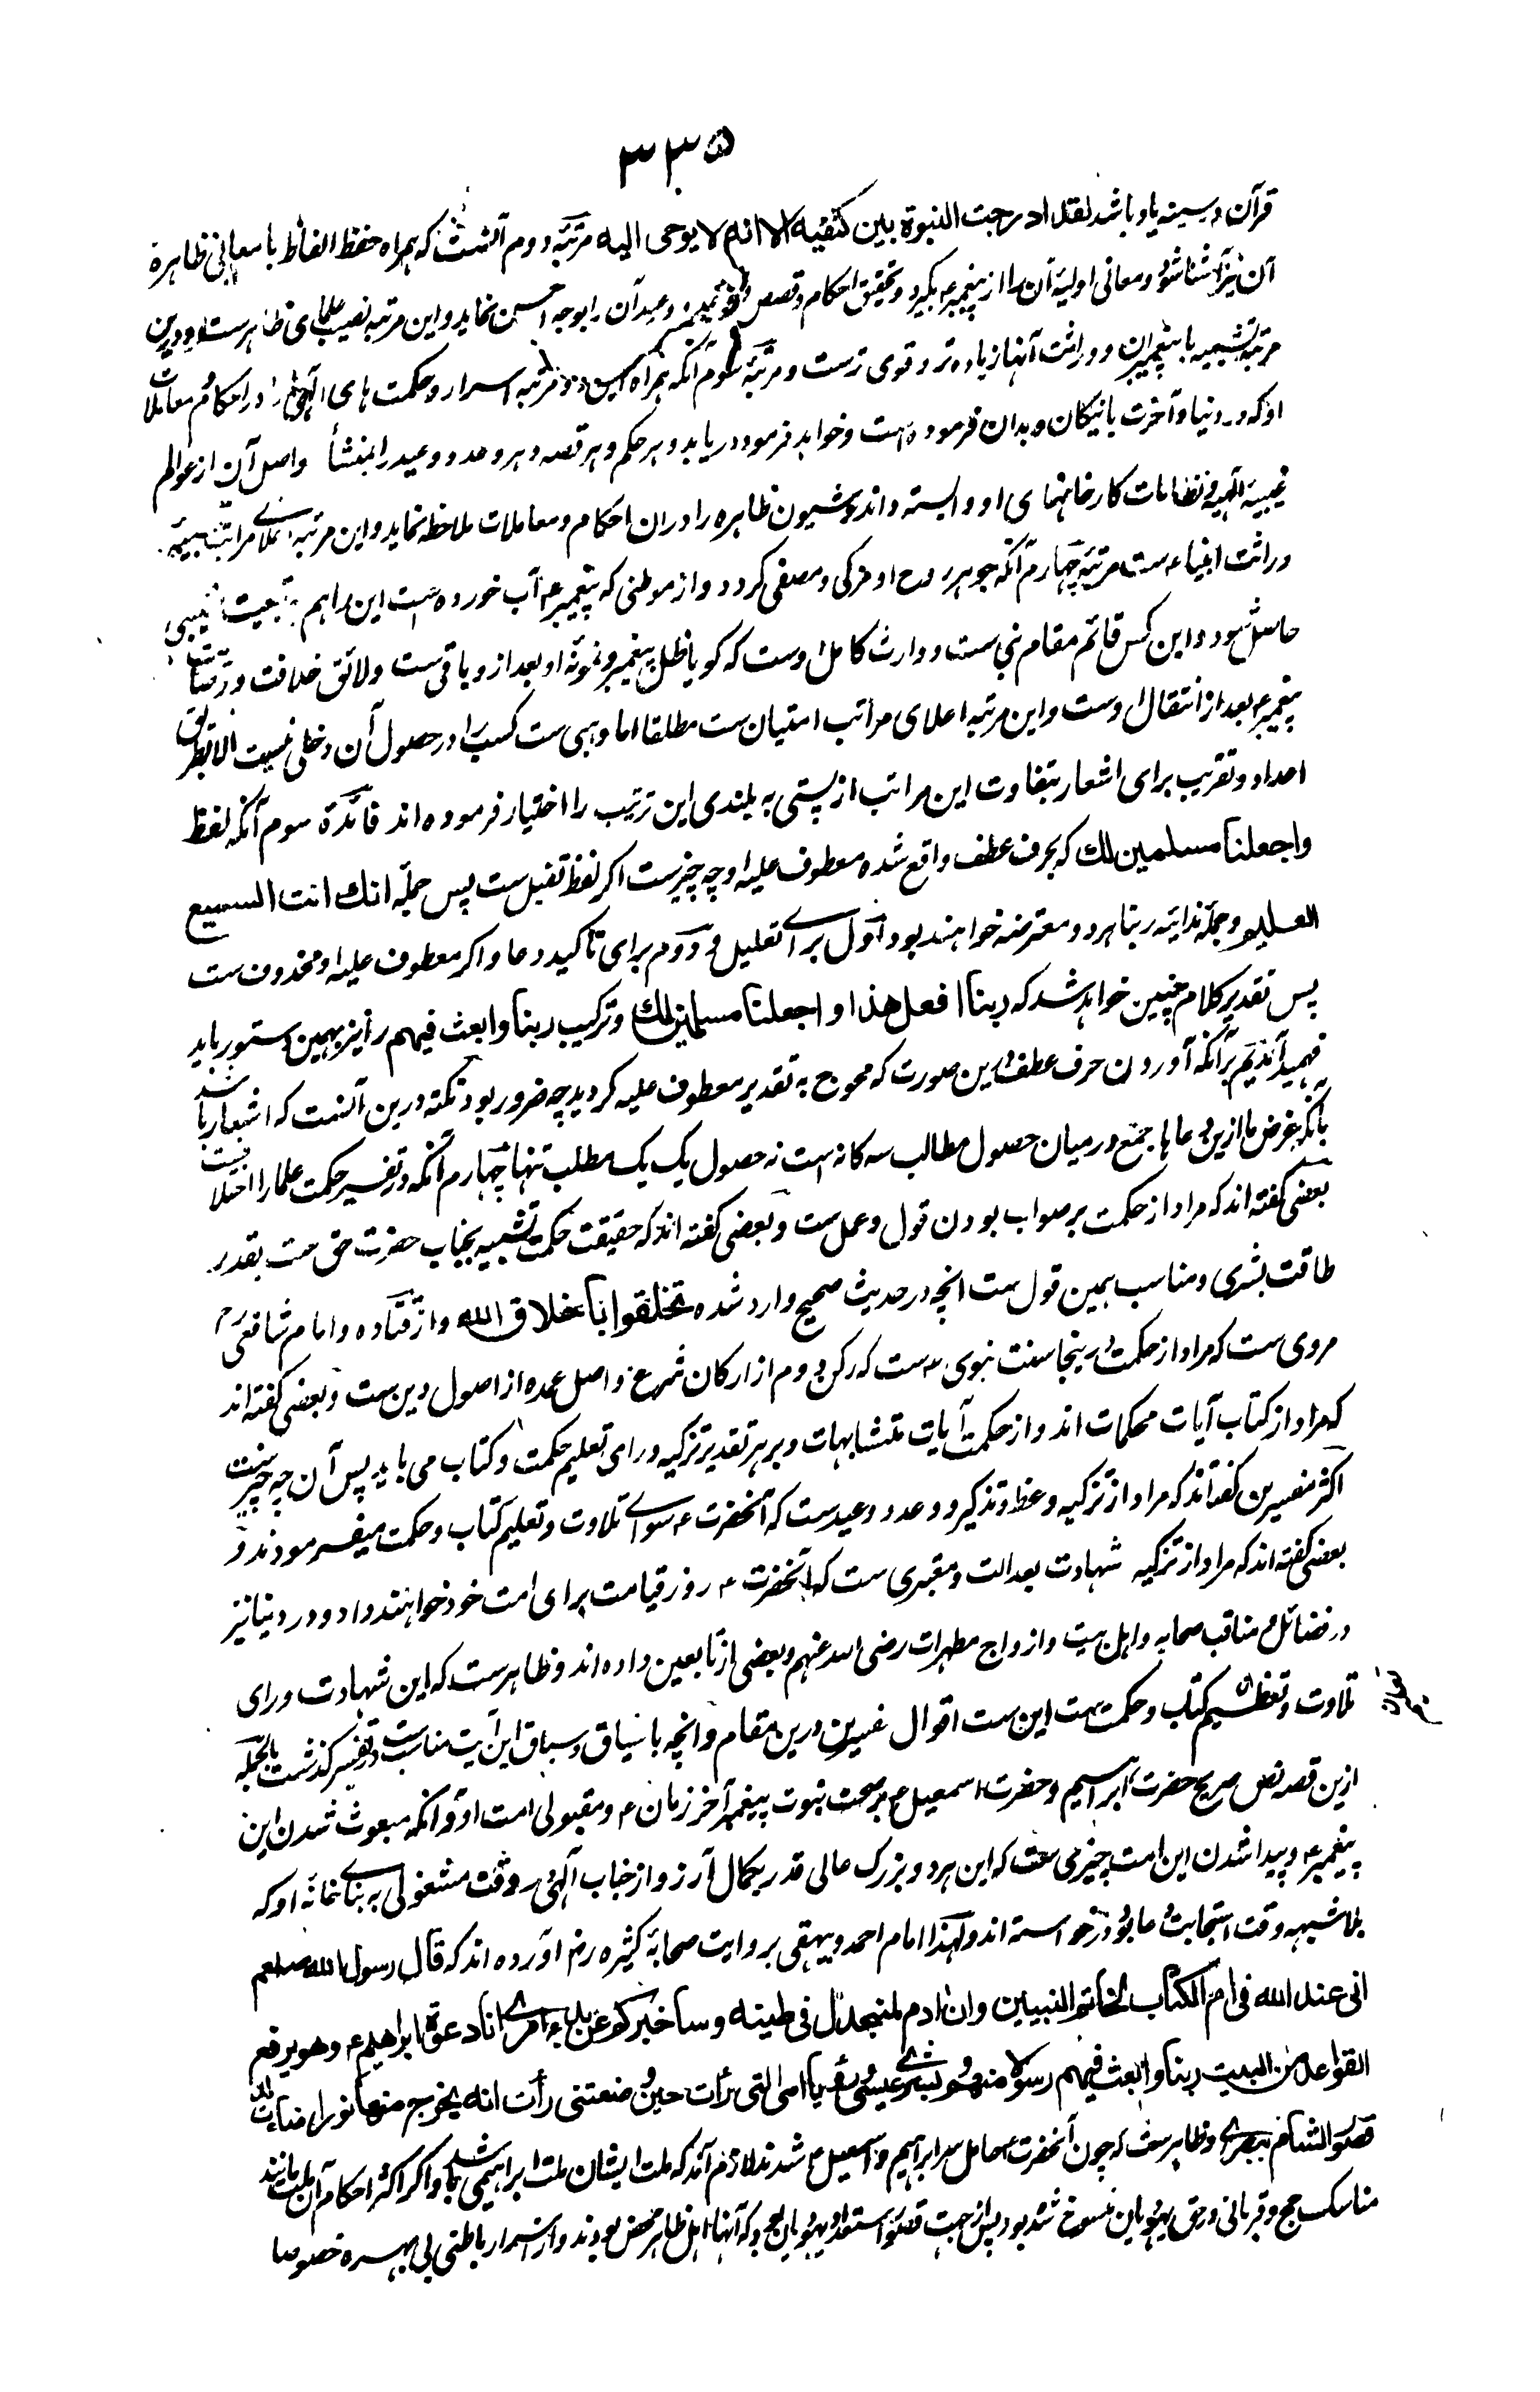 ۳۳۵
قرآن در سینه یاد باشد لقد ادرجت النبوة بین کتفیه الا انه لا یوحی الیه مرتبه دوم آنست که همراه حفظ الفاظ با معانی ظاهرهٔ
آن نیز آشنا شود و معانی اولیهٔ آن را از پیغمبر ع بگیرد و تحقیق احکام و قصص و وعید آن را بوجه احسن نماید و این مرتبه نصیب علمای ظاهرست و درین
مرتبه تشبیه با پیغمبران و وراثت آنها زیاده تر و قوی ترست و مرتبهٔ سوم آنکه همراه این دو مرتبه اسرار و حکمت های الهی را در احکام و معاملات
او که در دنیا و آخرت با نیکان و بدان فرموده است و خواهد فرمود دریابد و هر حکم و هر قصه و هر وعد و وعید را بمنشأ و اصل آن از عوالم
غیبیه الهیه و نظامات کارخانهای او وابسته داند و شیون ظاهره را دران احکام و معاملات ملاحظه نماید و این مرتبه اعلای مراتب
وراثت انبیاء ست مرتبهٔ چهارم آنکه جوهر روح او مزکی و مصفی گردد و از موطنی که پیغمبر ع آب خورده است این را هم به تبعیت نصیبی
حاصل شود و این کس قائم مقام نبی ست و وارث کامل اوست که گویا ظل پیغمبر و نمونهٔ او بعد از و باقی ست و لائق خلافت و
پیغمبر ع بعد از انتقال اوست و این مرتبه اعلای مراتب امتیان ست مطلقا اما وهبی ست کسب را در حصول آن دخلی نیست الا بطریق
امداد و تقریب برای اشعار بتفاوت این مراتب از پستی به بلندی این ترتیب را اختیار فرموده اند فائدهٔ سوم آنکه لفظ
واجعلنا مسلمین لک که بحرف عطف واقع شده معطوف علیه او چه چیزست اگر لفظ تقبل ست پس جملهٔ انک انت السمیع
العلیم و جملهٔ ندائیه ربنا هر دو معترضه خواهند بود اول برای تعلیل و دوم برای تاکید دعا و اگر معطوف علیه او محذوف ست
پس تقدیر کلام چنین خواهد شد که ربنا افعل هذا واجعلنا مسلمین لک و ترکیب ربنا وابعث فیهم را نیز بهمین دستور باید
فهمید آمدیم بر آنکه آوردن حرف عطف درین صورت که محوج به تقدیر معطوف علیه گردید چه ضرور بود نکته درین آنست که اشعار باشد
بآنکه غرض ما ازین دعاها جمع در میان حصول مطالب سه گانه است نه حصول یک یک مطلب تنها چهارم آنکه در تفسیر حکمت علما را اختلاف ست
بعضی گفته اند که مراد از حکمت بر صواب بودن قول و عمل ست و بعضی گفته اند که حقیقت حکمت تشبیه بجناب حضرت حق ست بقدر
طاقت بشری و مناسب همین قول ست انچه در حدیث صحیح وارد شده تخلقوا باخلاق الله و از قتاده و امام شافعی رح
مروی ست که مراد از حکمت درینجا سنت نبوی ع ست که رکن دوم از ارکان شرع و اصل عمده از اصول دین ست و بعضی گفته اند
که مراد از کتاب آیات محکمات اند و از حکمت آیات متشابهات و بر هر تقدیر تزکیه ورای تعلیم حکمت و کتاب می باید پس آن چه چیزست
اکثر مفسرین گفته اند که مراد از تزکیه وعظ و تذکیر و وعد و وعید ست که آنحضرت ع سوای تلاوت و تعلیم کتاب و حکمت میفرمودند و
بعضی گفته اند که مراد از تزکیه شهادت بعدالت و معتبری ست که آنحضرت ع روز قیامت برای امت خود خواهند داد و در دنیا نیز
در فضائل و مناقب صحابه و اهل بیت و ازواج مطهرات رضی الله عنهم و بعضی از تابعین داده اند و ظاهرست که این شهادت ورای
تلاوت و تعظیم کتاب و حکمت ست این ست اقوال مفسرین درین مقام و انچه با سیاق و سباق این آیت مناسب ست در تفسیر گذشت بالجمله
ازین قصه نص صریح حضرت ابراهیم و حضرت اسمعیل ع بر صحت نبوت پیغمبر آخر زمان ع و مقبولی امت او و آنکه مبعوث شدن این
پیغمبر ع و پیدا شدن این امت چیزی ست که این هر دو بزرگ عالی قدر بکمال آرزو از جناب الهی در وقت مشغولی به بنای خانهٔ او که
بلا شبهه وقت استجابت دعا بود درخواسته اند و لهذا امام احمد و بیهقی بروایت صحابهٔ کثیره رض آورده اند که قال رسول الله صلعم
انی عند الله فی ام الکتاب لخاتم النبیین وان ادم لمنجدل فی طینه وساخبرکم عن بدء امری انا دعوة ابراهیم ع وهو یرفع
القواعد من البیت ربنا وابعث فیهم رسولا منهم وبشری عیسی ورؤیا امی التی رأت حین وضعتنی رأت انه یخرج منها نورا ضاءت له
قصور الشام ببصری و ظاهرست که چون آنحضرت ع حامل سر ابراهیم و اسمعیل ع شدند لازم آمد که ملت ایشان ملت ابراهیمی باشد و اگر اکثر احکام آن ملت مانند
مناسک حج و قربانی در حق یهودیان منسوخ شده بود پس از جهت قصور استعداد یهودیان بود که آنها اهل ظاهر محض بودند و از اسرار باطنی بی بهره خصوصا